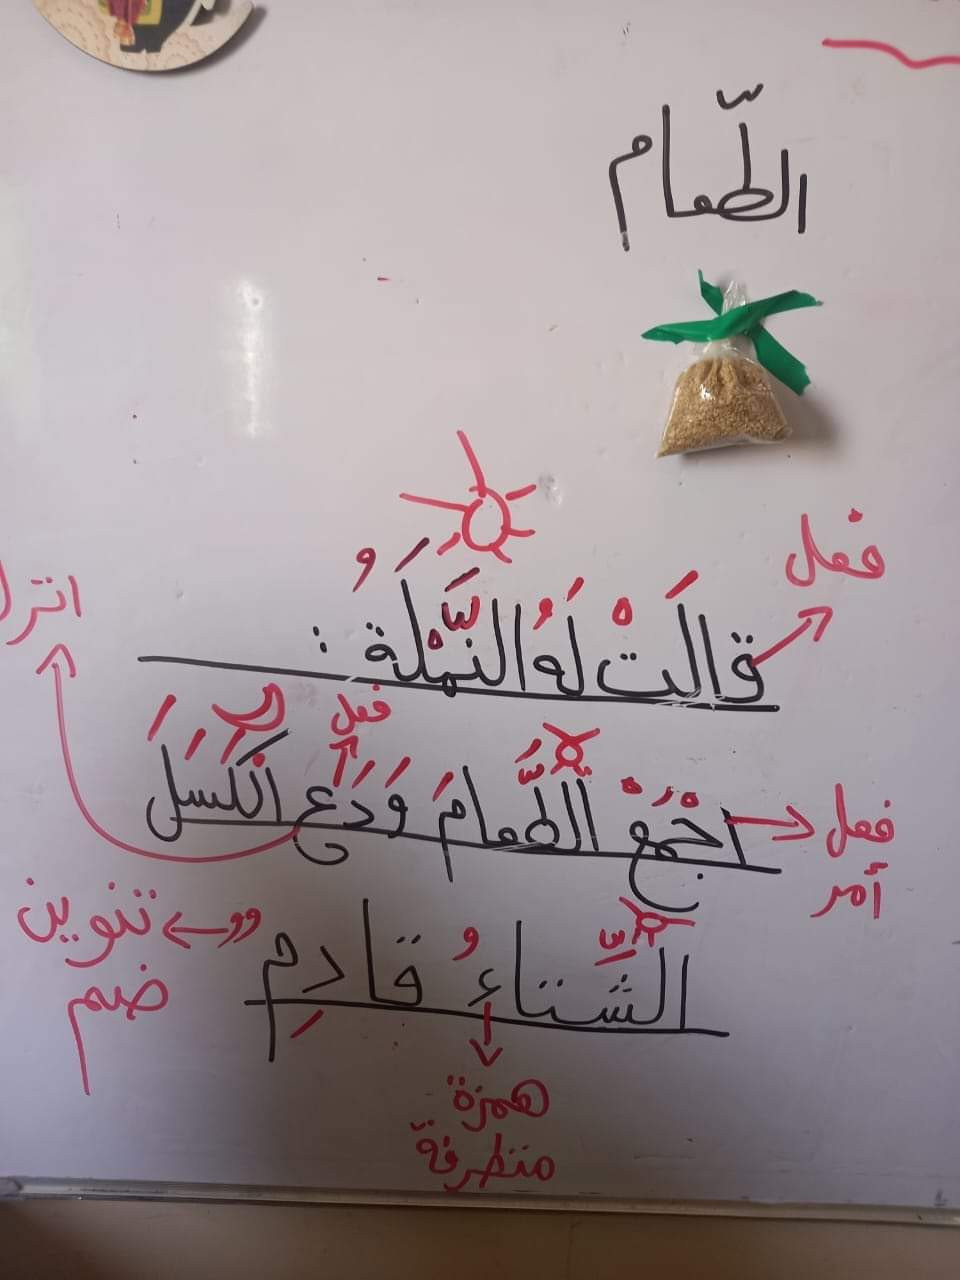 الطّعام
فعل
قالَتْ لهُ النَّمْلَةُ :
اترك
فعل
اجْمَعْ الطَّعامَ وَدَعِ الْكَسَلَ
فعل أمر
الشِّتاءُ قادِم
تنوين ضم
همزة
متطرفة